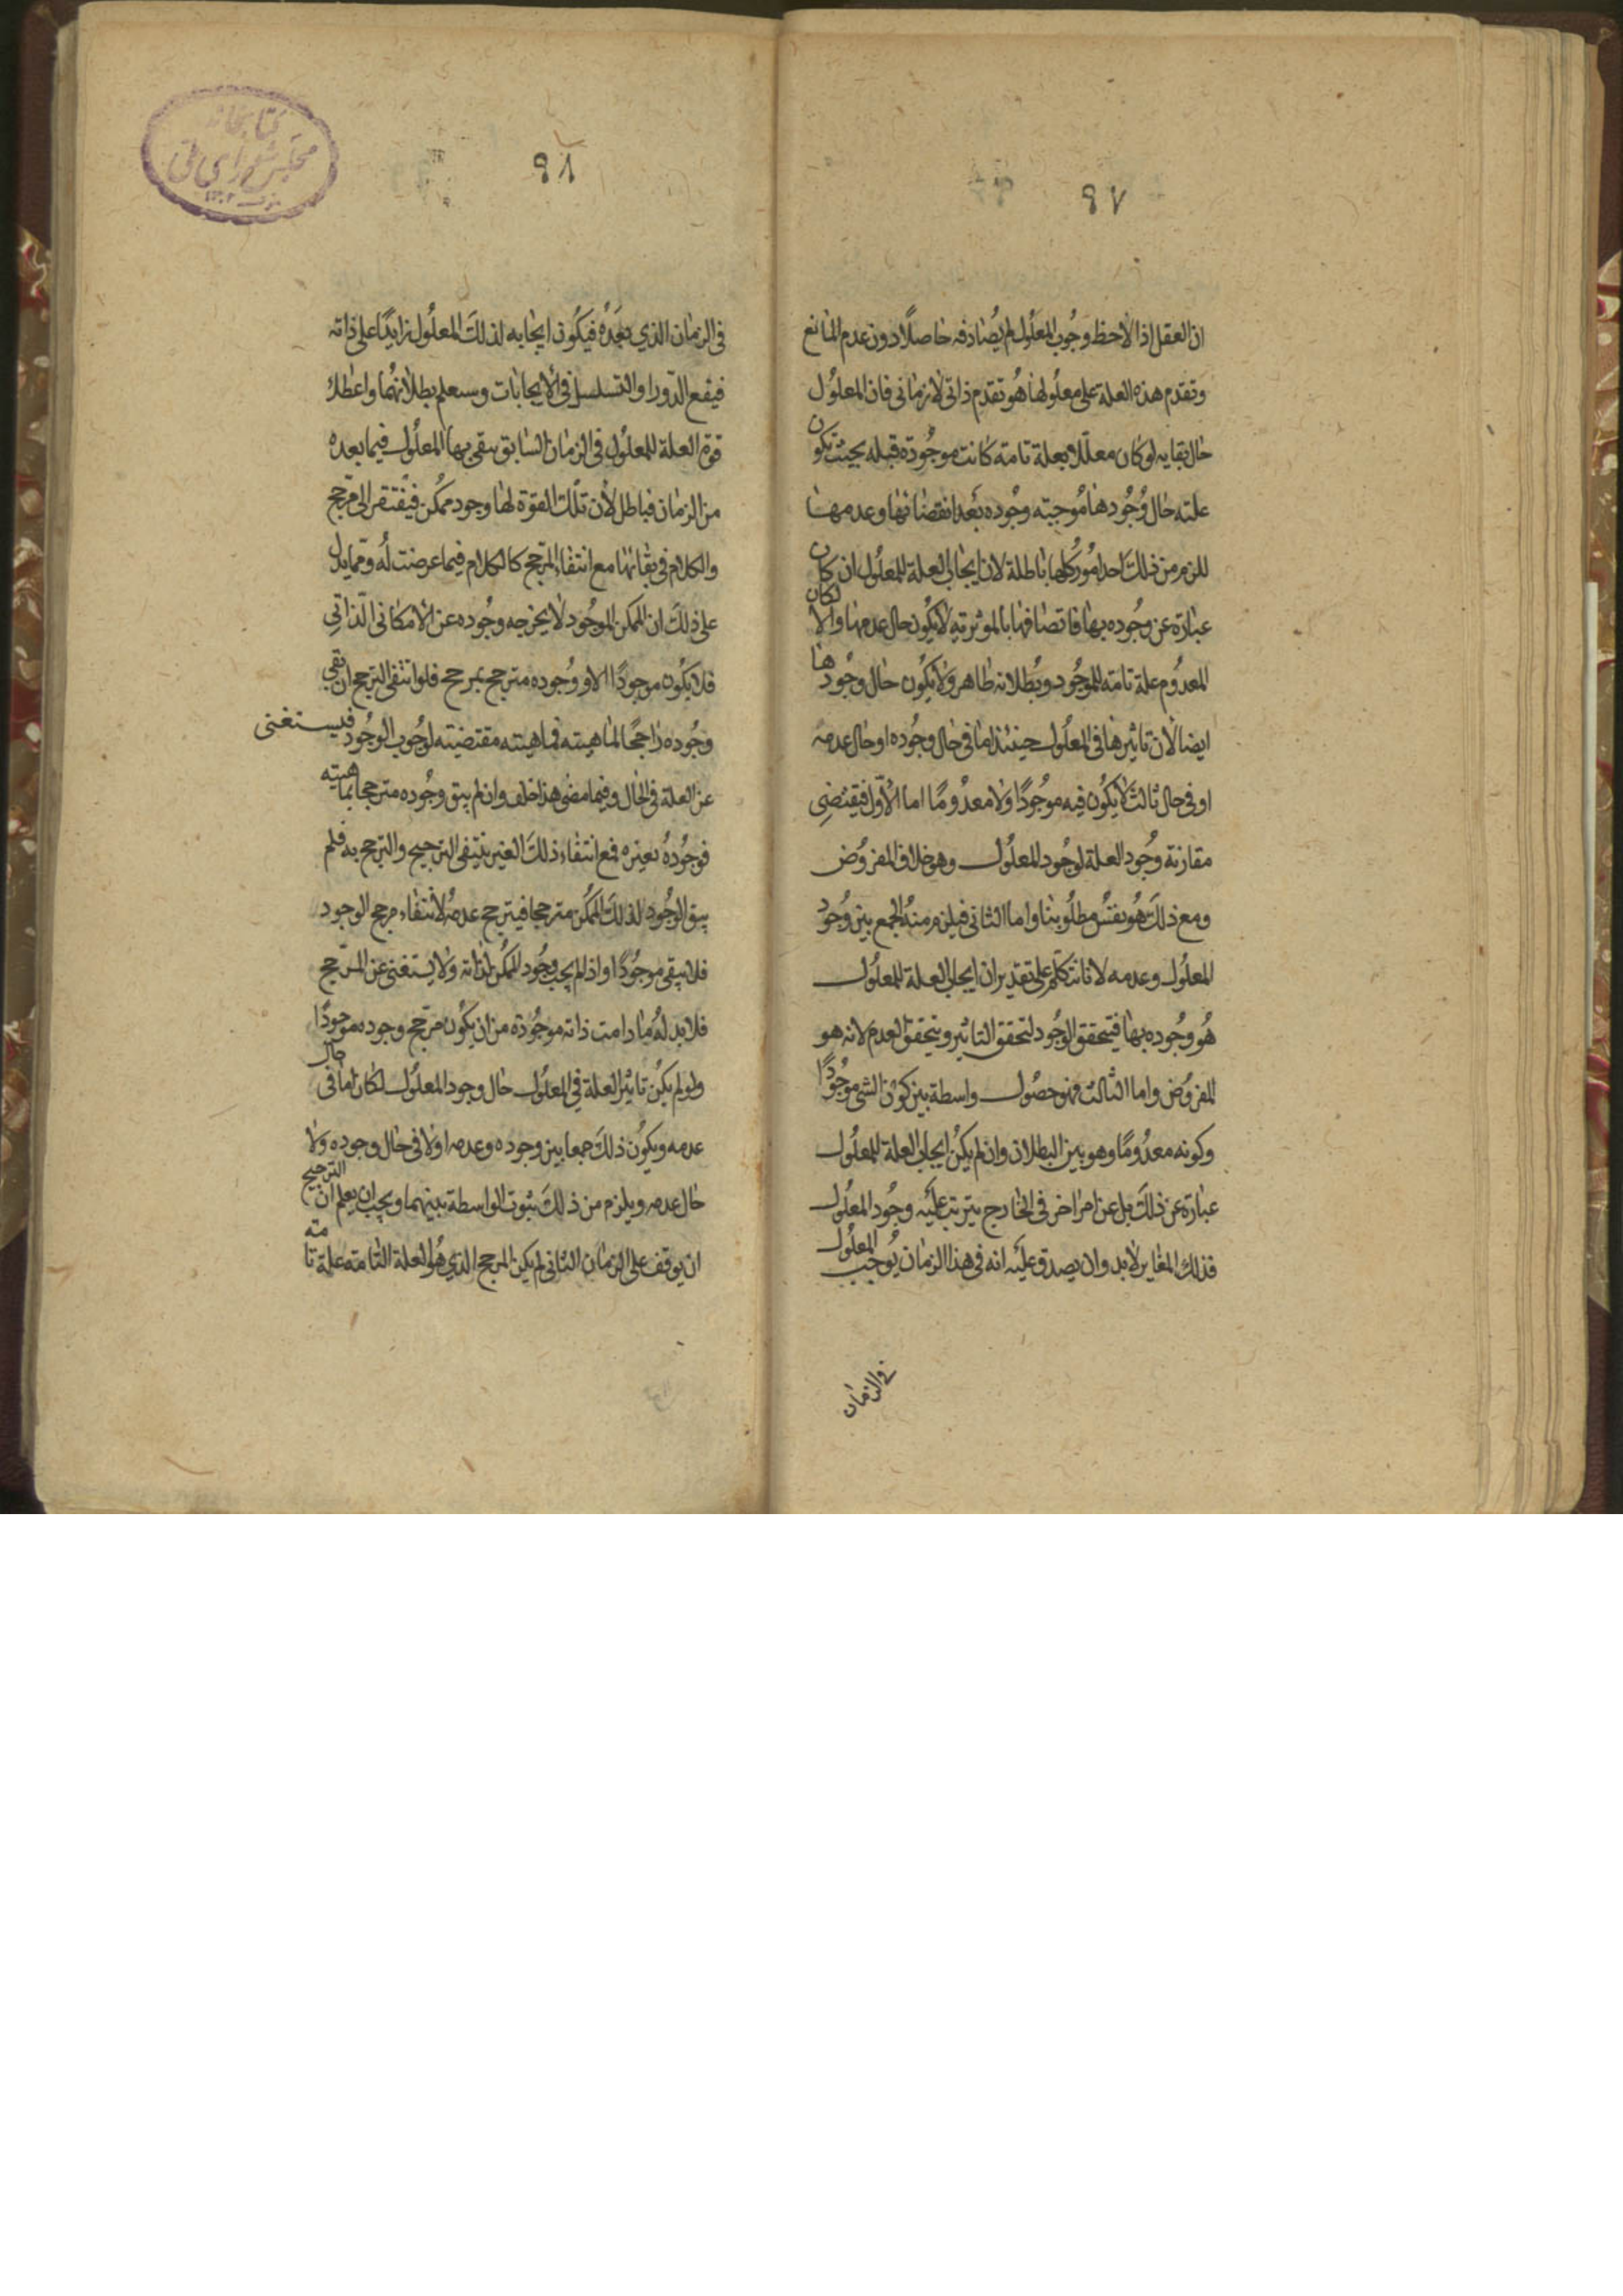 ٩٧
ان العقل اذا لاحظ وجُوب المعلُول لم يُصادفه حاصلًا دون عدم المانع
وتقدم هذه العلة على معلُولها هُو تقدم ذاتى لا زمانى فان المعلول
حال بقايه لو كان معلّلا بعلة تامة كانت موجُودة قبله بحيث تكون
علته حال وُجُودها مُوجبته وجُوده بَعد انقضائها وعدمها
للزم من ذلكَ احد امُور كلها باطلة لان ايجاب العلة للمعلُول ان كان
عبارة عن وجُوده بها فاتصافها بالموثرية لا يكُون حال عدمها والا لكان
المعدُوم علة تامة للموجُود وبُطلانه ظاهر ولا يكُون حال وجُودها
ايضا لان تاثيرها فى المعلُول حينئذ اما فى حال وجُوده او حال عدمه
او فى حال ثالث لا يكُون فيه موجُودًا ولا معدُومًا اما الاوّل فيقتضِى
مقارنة وجُود العلة لوجُود المعلُول وهو خلاف المفروُض
ومع ذلكَ هُو نفسُ مطلُوبنا واما الثانى فيلزم منهُ الجمع بين وُجُود
المعلُول وعدمه لانا نتكلم على تقدير ان ايجاب العلة للمعلُول
هُو وجُوده بها فيتحقق الوجُود لتحقق التاثير ويتحقق العدم لانه هو
المفروُض واما الثالث فهو حصُول واسطة بين كون الشى موجُودًا
وكونه معدُومًا وهو بين البطلان وان لم يكنُ ايجاب العلة للمعلُول
عبارة عن ذلكَ بل عن امر اخر فى الخارج يترتب علَيه وجُود المعلُول
فذلك المغاير لا بد وان يصدق علَيه انه فى هذا الزمان يُوجب المعلُول
فى الزمان
٩٨
فى الزمان الذي بعدهُ فيكُون ايجابه لذلكَ المعلُول زايدًا على ذاته
فيقع الدّور او التسلسل فى الايجابات وستعلم بطلانهُما واعطاء
قوة العلة للمعلُول فى الزمان السّابق يبقى بها المعلُول فيما بعده
من الزمان فباطل لأن تلك القوّة لها وجود ممكن فيفتقر الى مرّجح
والكلام فى بقائها مع انتفاء المرّجح كالكلام فيما عرضت لُه ومما يدل
على ذلكَ ان الممكن الموجُود لا يخرجه وجُوده عن الامكانى الذّاتِى
فلا يكُون موجودًا الا ووُجوده مترجح بمرجح فلو انتفى الترجح ان بقى
وجُوده رَاجحًا لماهيته فماهيته مقتضيته لوجُوب الوجُود فيستغنى
عن العلة فى الحال وفيما مضى هذا خلف وان لم يبق وجُوده مترجحا بماهيته
فوجُودهُ بغيره فمع انتفاء ذلكَ الغير ينتفى الترجيح والترجح به فلم
يبق الوجُود لذلكَ الممكُن مترجحا فيترجح عدمهُ لانتفاء مرجح الوجود
فلا يبقى موجُودًا واذا لم يجب وجُود الممكُن لذاته ولا يستغنى عن المرّجح
فلا بد لهُ ما دامت ذاته موجُودة من ان يكُون مرّجح وجوده موجودًا
ولو لم يكُن تاثير العلة فى المعلُول حال وجود المعلُول لكان اما فى حال
عدمه ويكُون ذلكَ جمعا بين وجوده وعدمه او لا فى حال وجوده ولا
حال عدمه ويلزم من ذلكَ ثبوت الواسطة بينهما ويجب ان يعلم ان الترجيح
ان يوقف على الزمان الثانى لم يكن المرجح الذي هُو العلة التامة علة تامه
كتابخانه
مجلس شوراى ملى